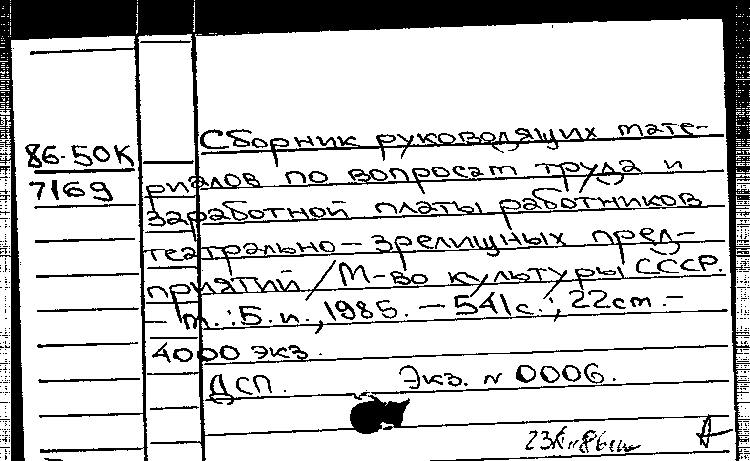 86-50К
7169
Сборник руководящих мате-
риалов по вопросам труда и
заработной платы работников
театрально-зрелищных пред-
приятий / М-во культуры СССР.
- М. : Б. и., 1985. - 541 с. ; 22 см. -
4000 экз.
ДСП. Экз. № 0006.